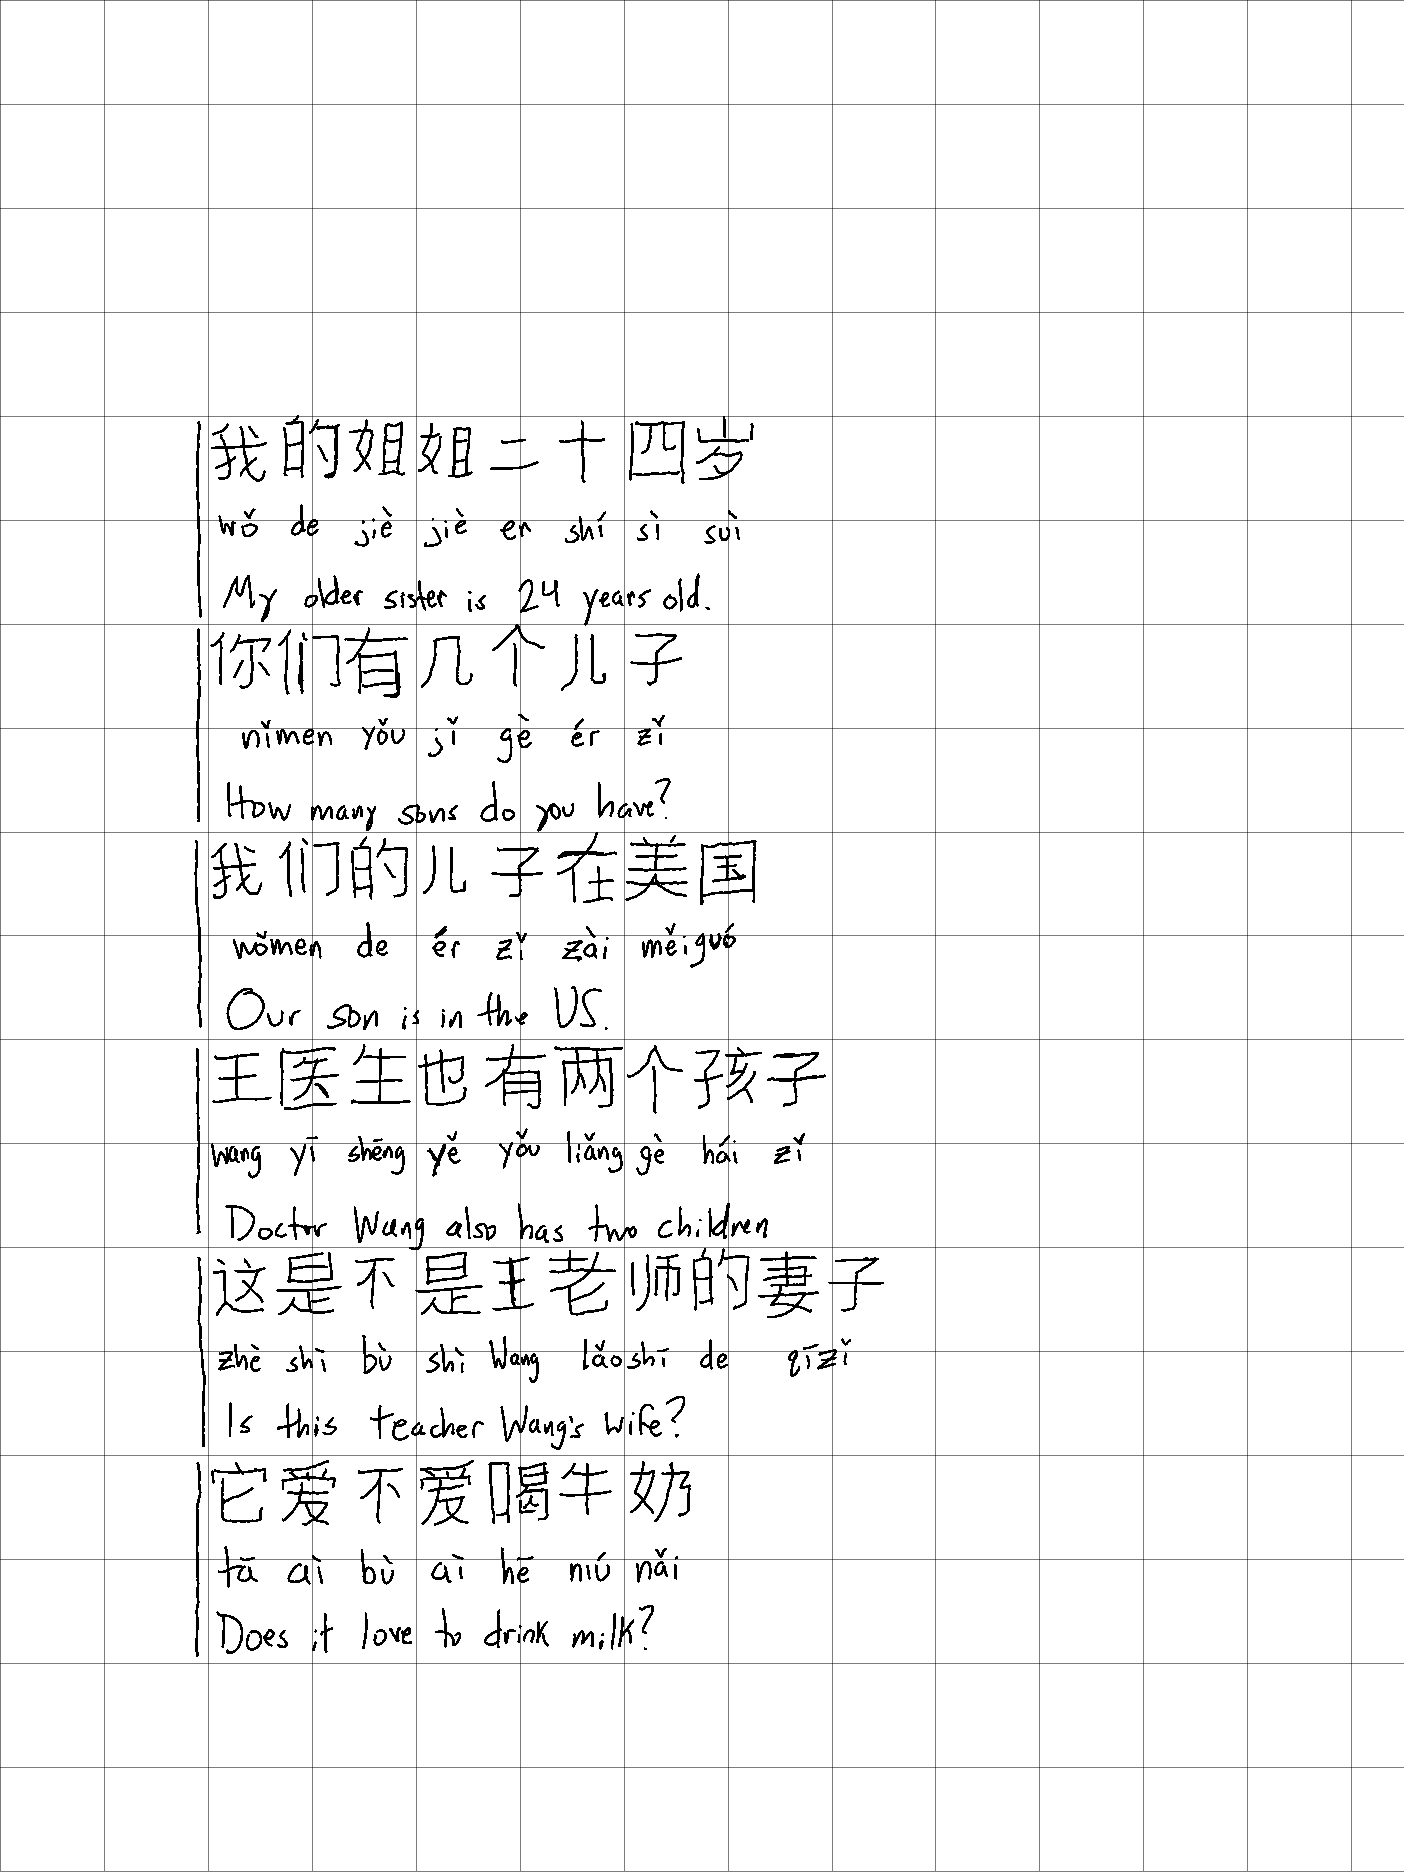 我的姐姐二十四岁
wǒ de jiè jiè er shí sì suì
My older sister is 24 years old.
你们有几个儿子
nǐmen yǒu jǐ gè ér zǐ
How many sons do you have?
我们的儿子在美国
wǒmen de ér zǐ zài měiguó
Our son is in the US.
王医生也有两个孩子
wang yī shēng yě yǒu liǎng gè hái zǐ
Doctor Wang also has two children
这是不是王老师的妻子
zhè shì bù shì Wang lǎoshī de qīzǐ
Is this teacher Wang's wife?
它爱不爱喝牛奶
tā aì bù aì hē niú nǎi
Does it love to drink milk?